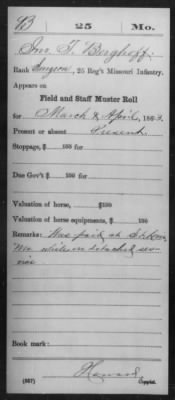 B | 25 | Mo.
Jno. T. Berghoff
Rank Surgeon, 25 Reg't Missouri Infantry.
Appears on
Field and Staff Muster Roll
for March & April, 1863.
Present or absent Present
Stoppage, $ 100 for
Due Gov't $ 100 for
Valuation of horse, $ 100
Valuation of horse equipments, $ 100
Remarks: Was paid at St.
Mo. while on detached ser-
vice
Book mark:
Howard
(357) Copyist.